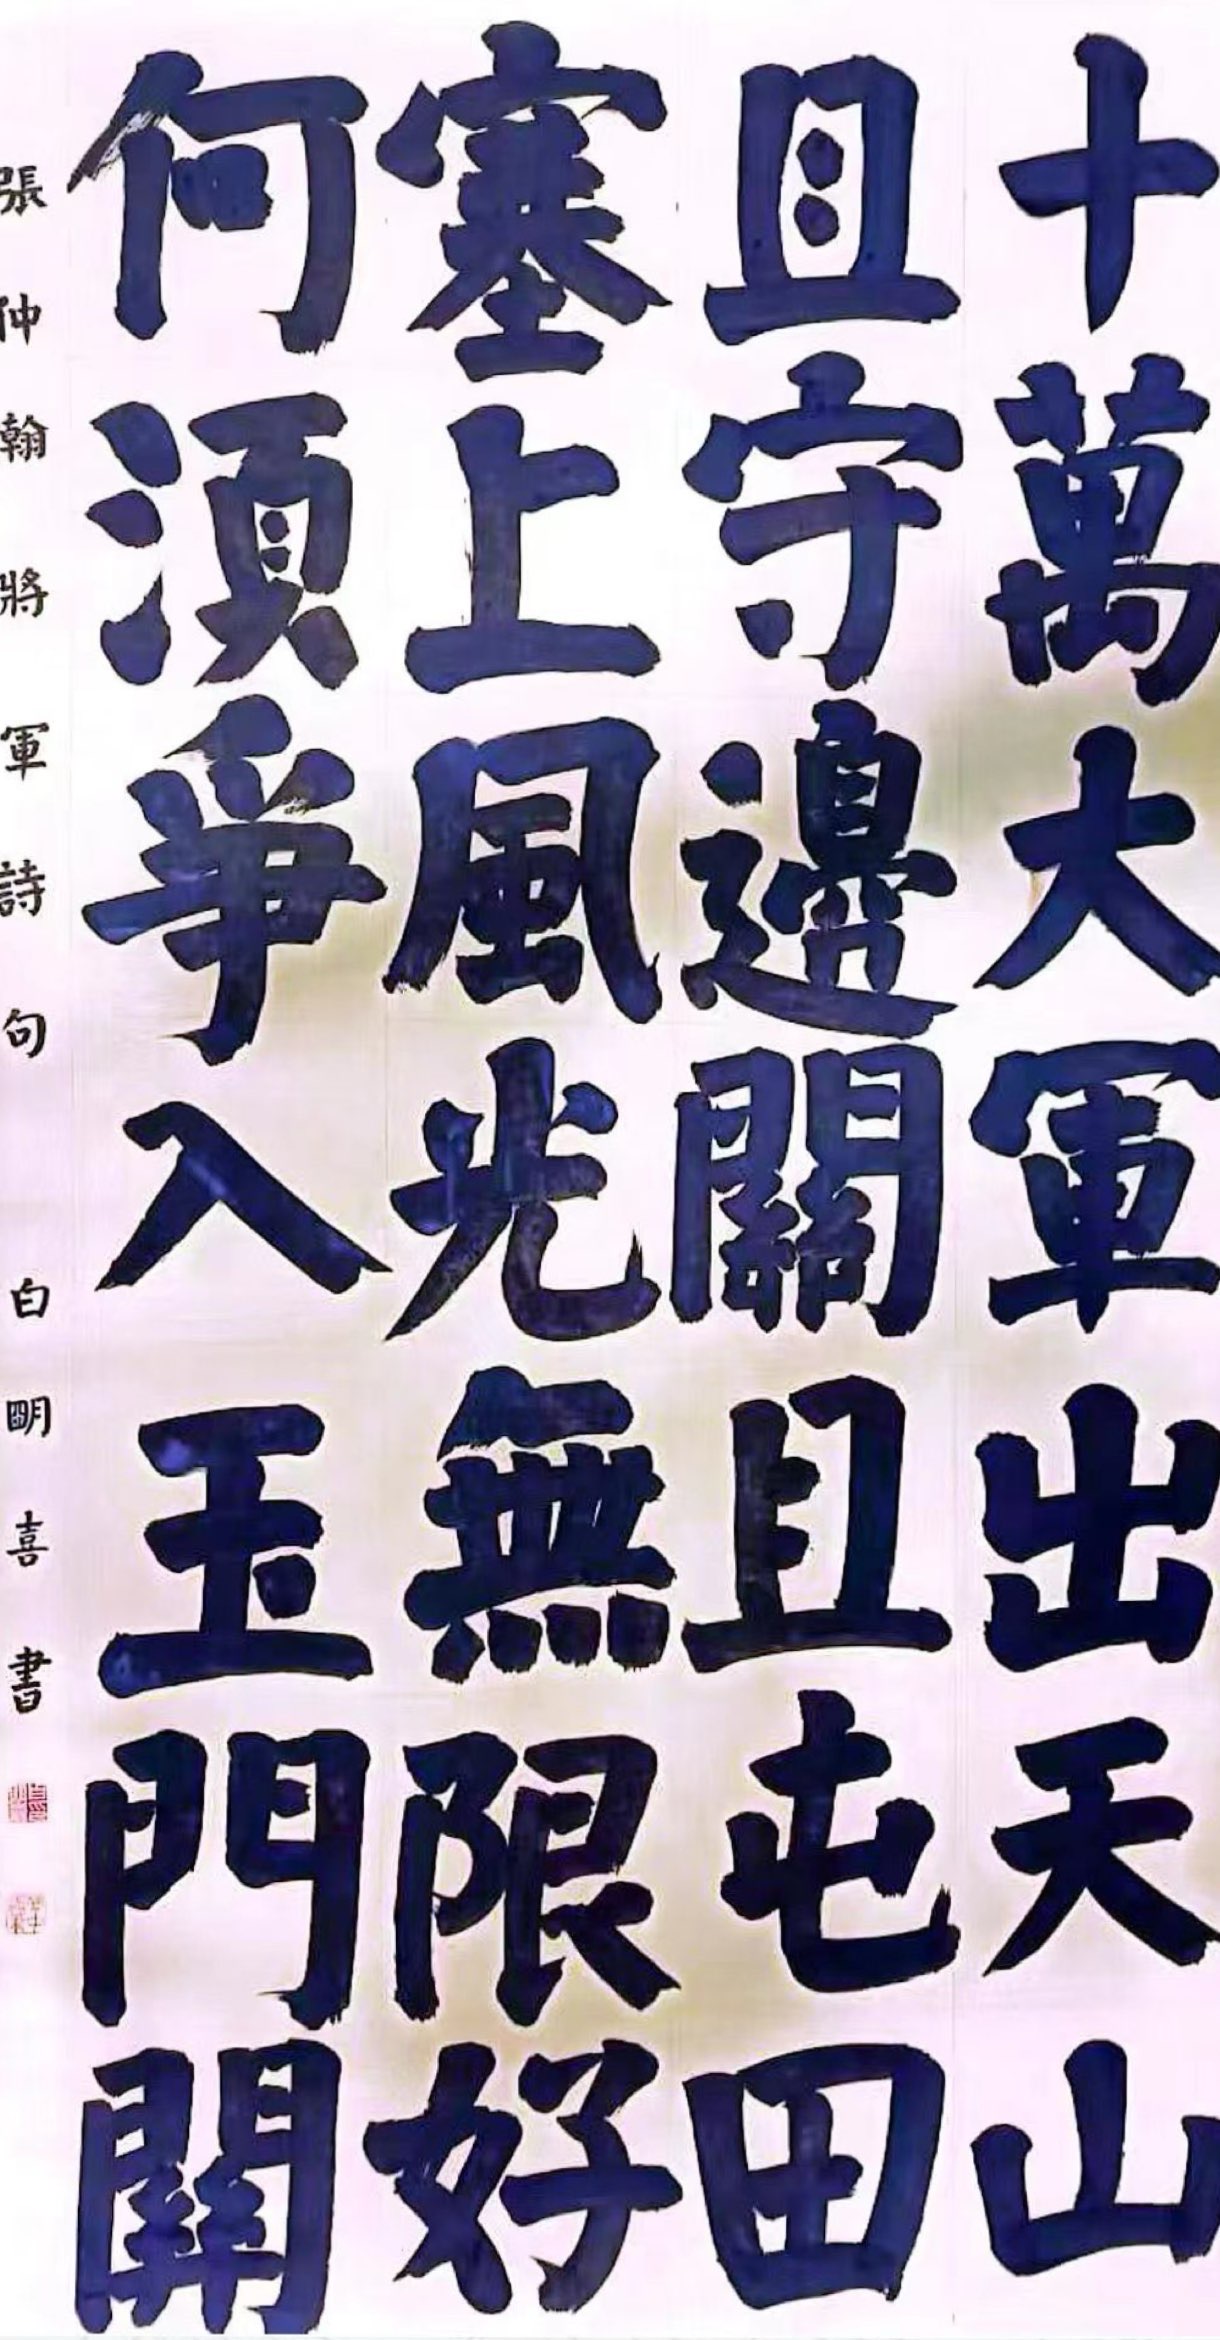 十萬大軍出天山
且守邊關且屯田
塞上風光無限好
何須爭入玉門關
張仲翰將軍詩句 白明喜書